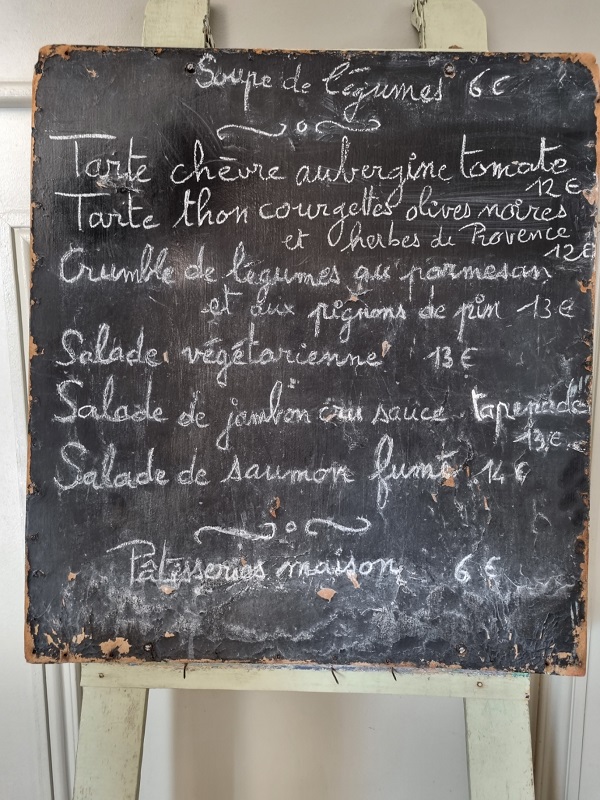 Soupe de légumes 6 €
Tarte chèvre aubergine tomate
12 €
Tarte thon courgettes olives noires
et herbes de Provence
12 €
Crumble de légumes au parmesan
et aux pignons de pin 13 €
Salade végétarienne 13 €
Salade de jambon cru sauce tapenade
13 €
Salade de saumon fumé 14 €
Pâtisseries maison 6 €